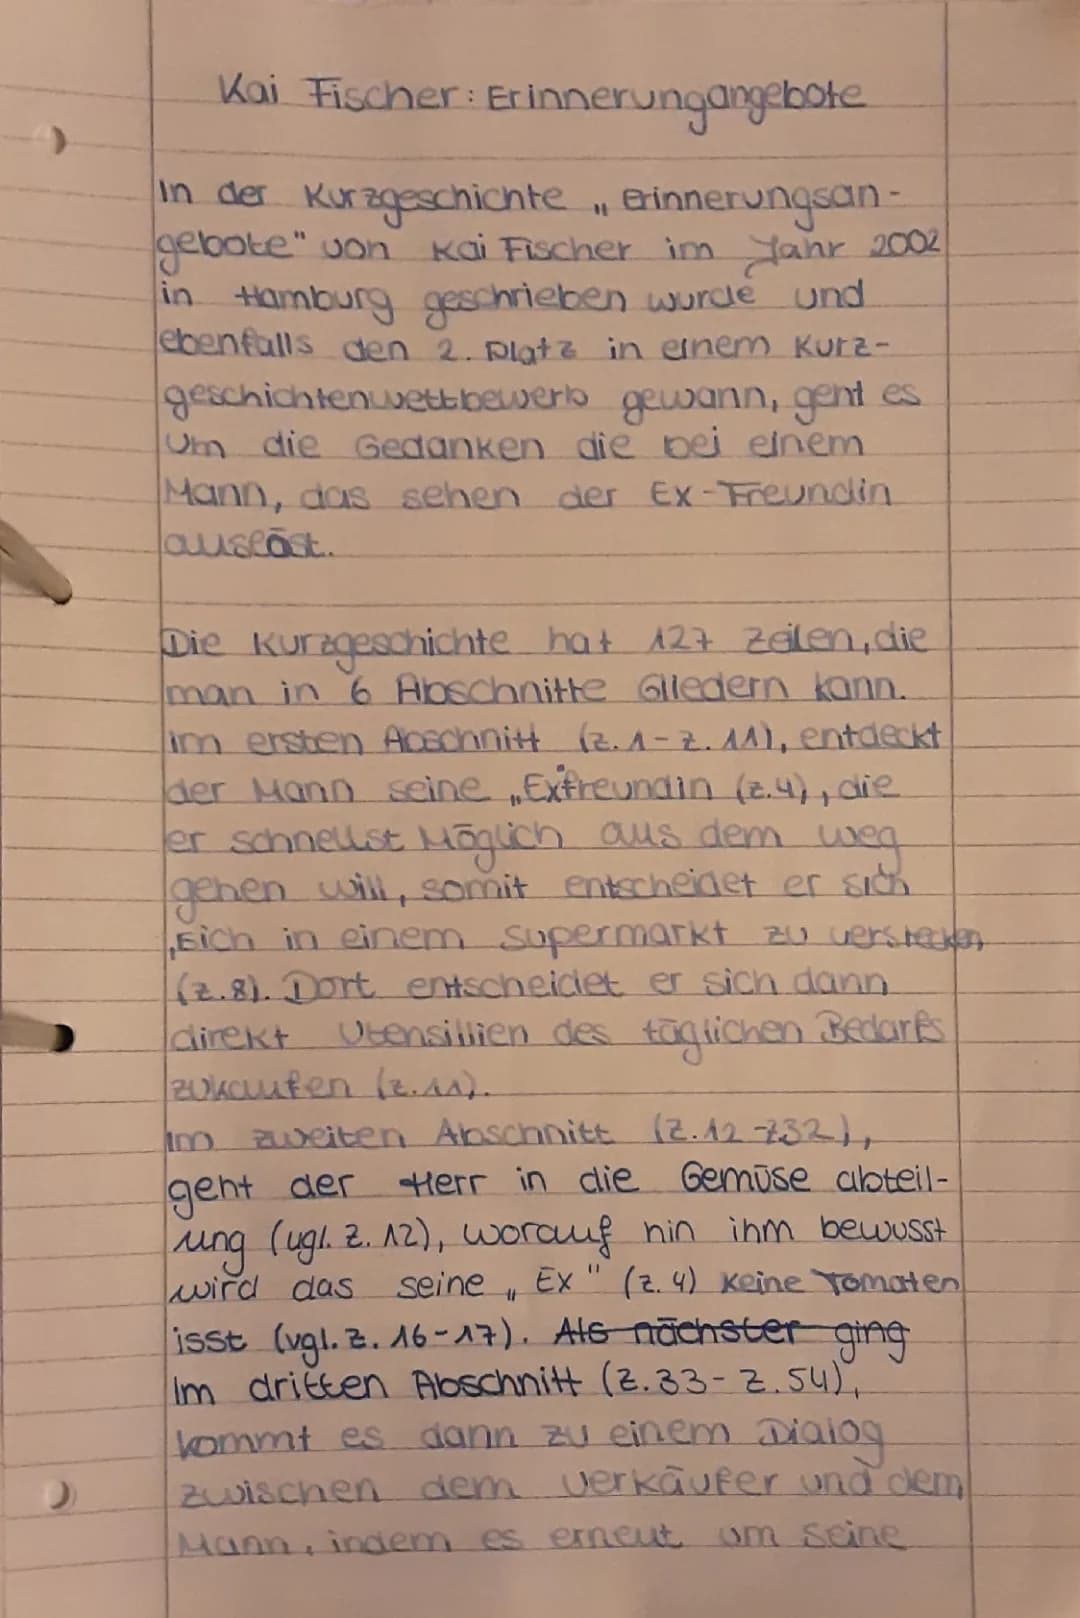 Kai Fischer: Erinnerungangebote
In der Kurzgeschichte „Erinnerungsan-
gebote" von Kai Fischer im Jahr 2002
in Hamburg geschrieben wurde und
ebenfalls den 2. Platz in einem Kurz-
geschichtenwettbewerb gewann, geht es
um die Gedanken die bei einem
Mann, das sehen der Ex-Freundin
auslöst.
Die Kurzgeschichte hat 127 Zeilen, die
man in 6 Abschnitte Gliedern kann.
Im ersten Abschnitt (z.1-z.11), entdeckt
der Mann seine „Exfreundin (z.4), die
er schnellst Möglich aus dem weg
gehen will, somit entscheidet er sich
sich in einem Supermarkt zu verstecken,
(z.8). Dort entscheidet er sich dann
direkt Utensillien des täglichen Bedarfs
zukaufen (z.11).
Im zweiten Abschnitt (Z.12-Z32),
geht der Herr in die Gemüse abteil-
ung (vgl. Z. 12), worauf hin ihm bewusst
wird das seine „Ex" (z.4) keine Tomaten
isst (vgl. Z. 16-17). Als nächster ging
Im dritten Abschnitt (Z.33-Z.54),
kommt es dann zu einem Dialog
zwischen dem Verkäufer und dem
Mann, indem es erneut um seine